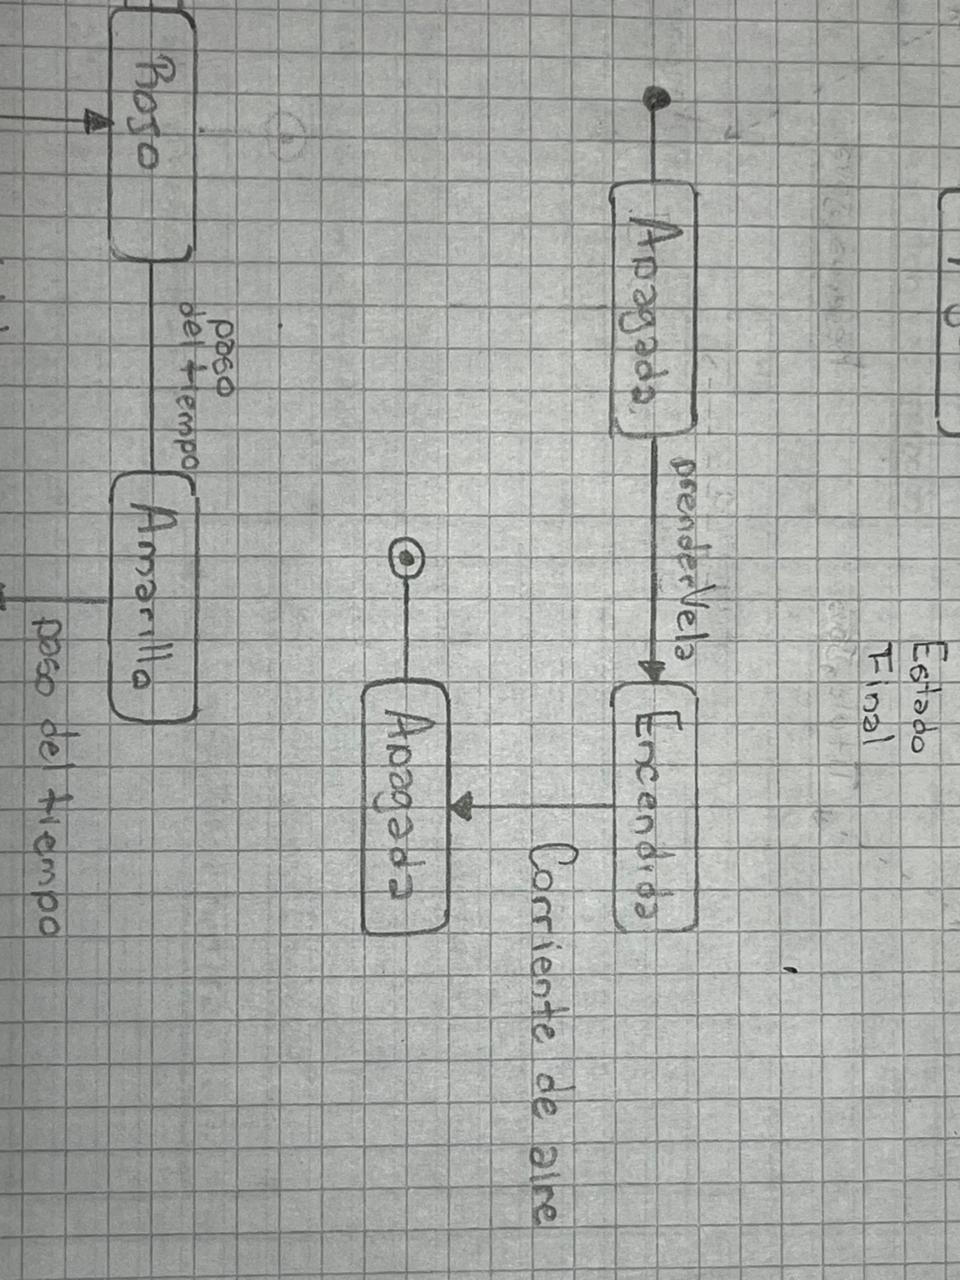 Estado
Final
Apagada
prenderVela
Encendida
Corriente de aire
Apagada
Rojo
paso
del tiempo
Amarillo
paso del tiempo